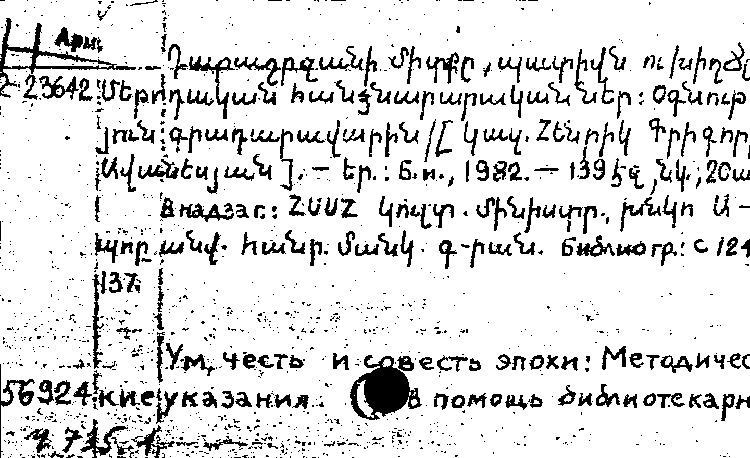 Арм.
Դարաշրջանի միտքը, պատիվն ու խիղճը
23642 Մեթոդական հանձնարարականներ: Օգնութ
յուն գրադարավարին/[կազ. Հենրիկ Գրիգոր
Ավանեսյան]. — Եր.: Б.и., 1982. — 139 էջ, նկ.; 20ս
В надзаг.: ՀՍՍՀ կուլտ. մինիստր.,
անվ. հանր. մանկ. գ-րան. Библиогр.: с 124
137.
Ум, честь и совесть эпохи: Методичес
56924 кие указания. В помощь библиотекарю